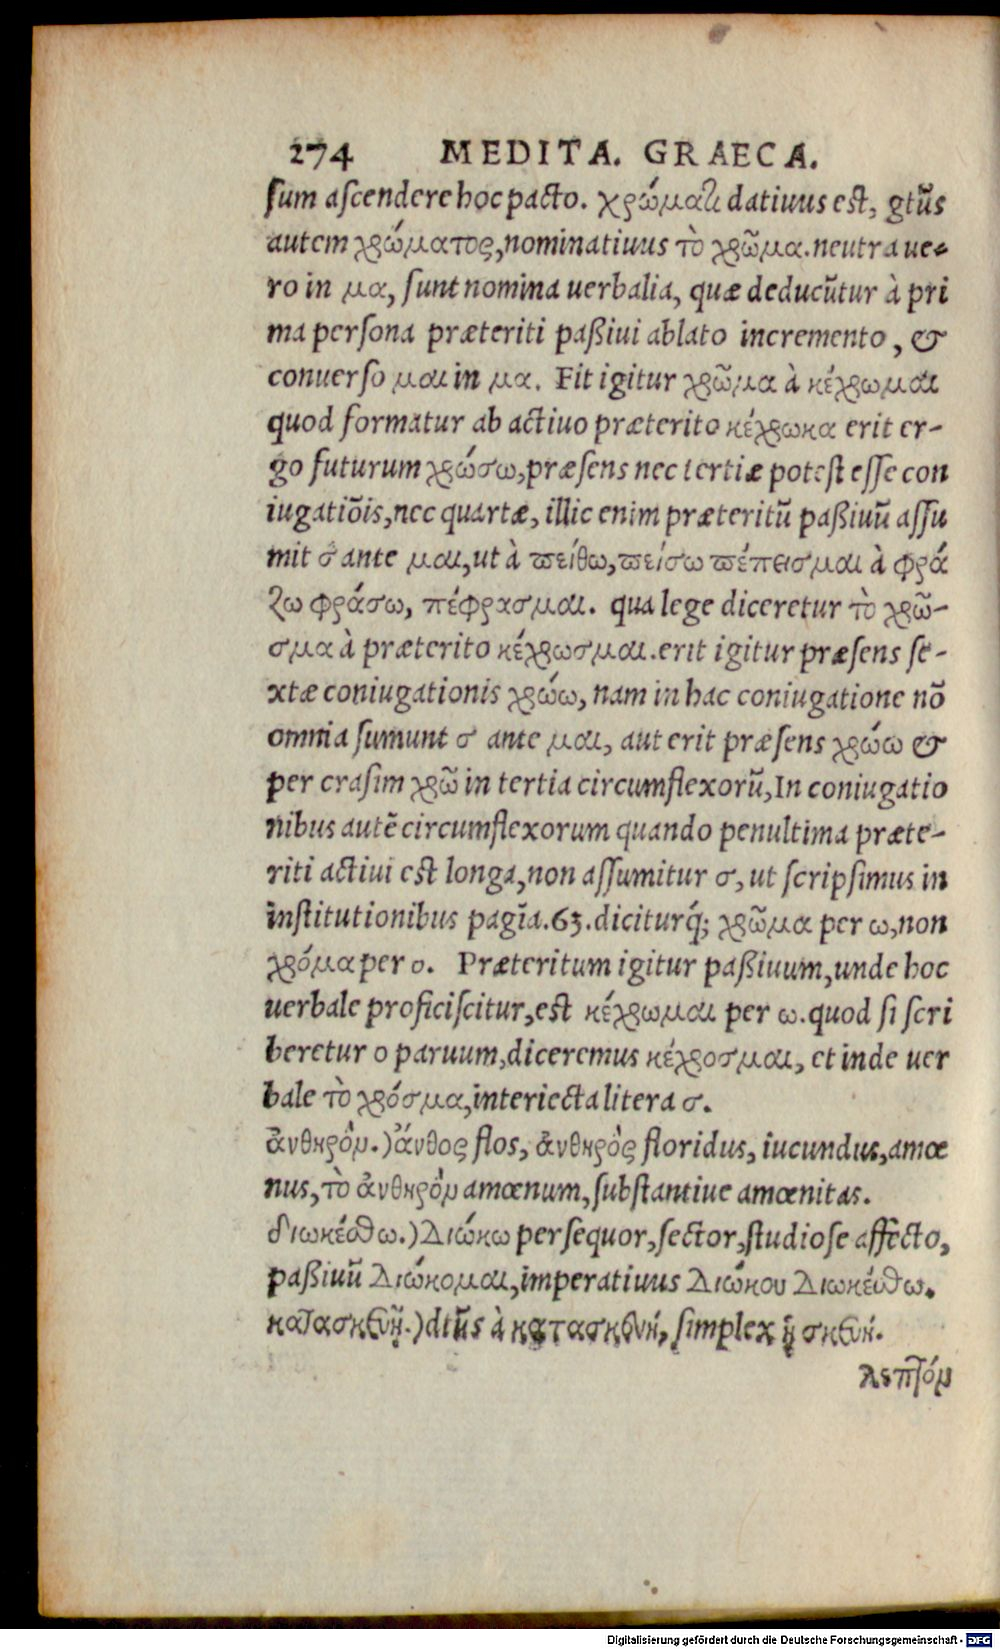 274 MEDITA. GRAECA.
sum ascendere hoc pacto. χρώματι datiuus est, gtūs
autem χρώματος, nominatiuus τὸ χρῶμα. neutra ue-
ro in μα, sunt nomina uerbalia, quæ deducūtur à pri
ma persona præteriti paßiui ablato incremento, &
conuerso μαι in μα. Fit igitur χρῶμα à κέχρωμαι
quod formatur ab actiuo præterito κέχρωκα erit er-
go futurum χρώσω, præsens nec tertiæ potest esse con
iugatiōis, nec quartæ, illic enim præteritū paßiuū assu
mit σ ante μαι, ut à πείθω, πείσω πέπεισμαι à φρά
ζω φράσω, πέφρασμαι. qua lege diceretur τὸ χρῶ-
σμα à præterito κέχρωσμαι. erit igitur præsens se-
xtæ coniugationis χρώω, nam in hac coniugatione nō
omnia sumunt σ ante μαι, aut erit præsens χρώω &
per crasim χρῶ in tertia circumflexorū, In coniugatio
nibus autē circumflexorum quando penultima præte-
riti actiui est longa, non assumitur σ, ut scripsimus in
institutionibus pagīa. 63. diciturq́; χρῶμα per ω, non
χρόμα per ο. Præteritum igitur paßiuum, unde hoc
uerbale proficiscitur, est κέχρωμαι per ω. quod si scri
beretur o paruum, diceremus κέχροσμαι, et inde uer
bale τὸ χρόσμα, interiecta litera σ.
ἀνθηρὸν.) ἄνθος flos, ἀνθηρὸς floridus, iucundus, amœ
nus, τὸ ἀνθηρὸν amœnum, substantiue amœnitas.
διωκέσθω.) Διώκω persequor, sector, studiose affecto,
paßiuū Διώκομαι, imperatiuus Διώκου Διωκέσθω.
κατασκευῇ.) dtūs à κατασκευή, simplex ἡ σκευή.
λεπτόν
Digitalisierung gefördert durch die Deutsche Forschungsgemeinschaft - DFG